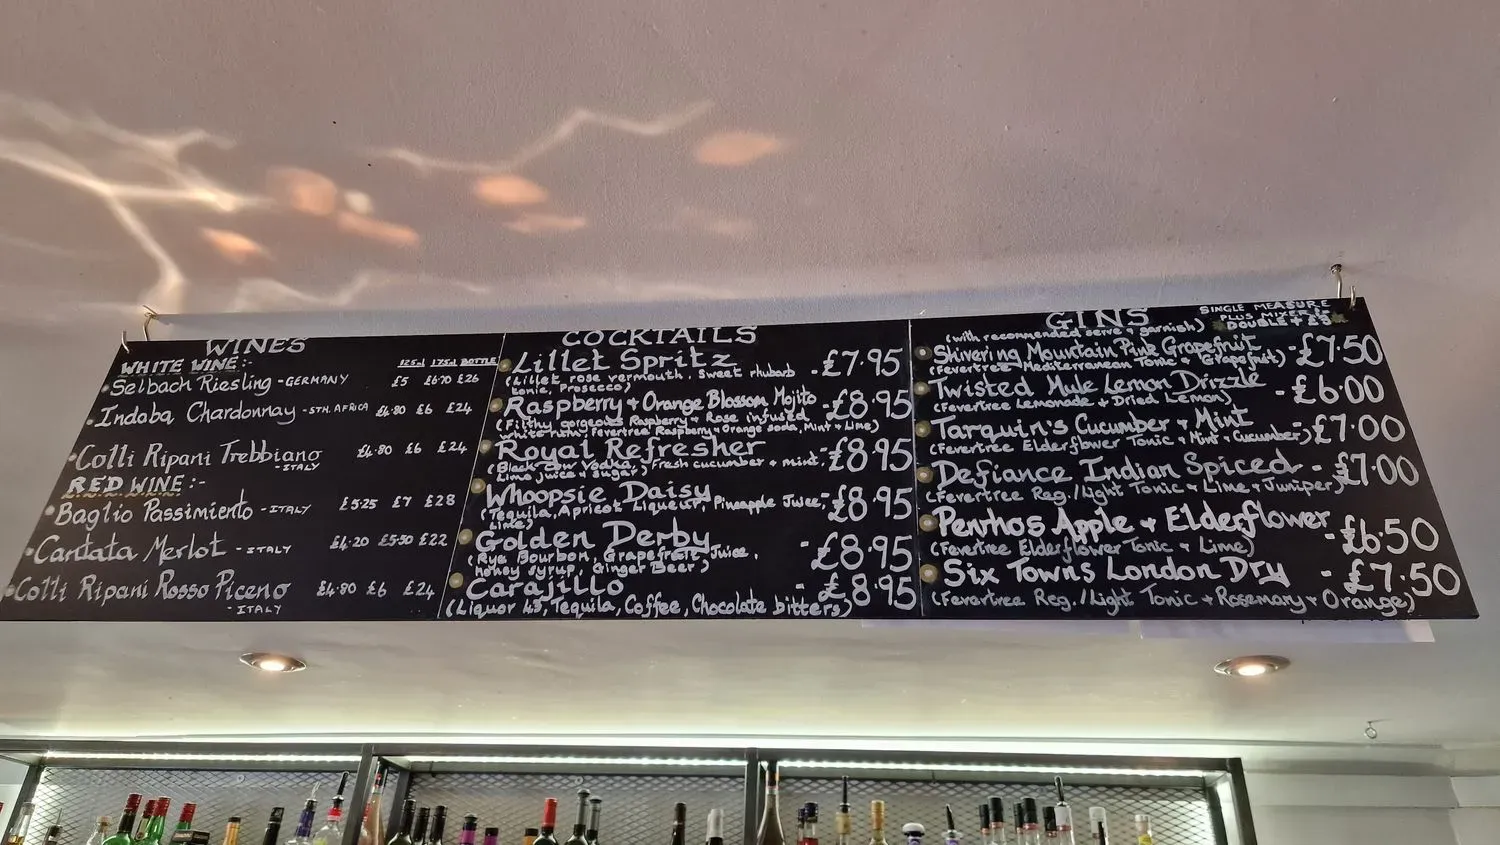 WINES
WHITE WINE:-
125ml 175ml BOTTLE
Selbach Riesling - GERMANY £5 £6.70 £26
Indaba Chardonnay - STH. AFRICA £4.80 £6 £24
Colli Ripani Trebbiano £4.80 £6 £24
- ITALY
RED WINE:-
Baglio Passimiento - ITALY £5.25 £7 £28
Cantata Merlot - ITALY £4.20 £5.50 £22
Colli Ripani Rosso Piceno £4.80 £6 £24
- ITALY
COCKTAILS
Lillet Spritz - £7.95
(Lillet rose vermouth, sweet rhubarb
tonic, Prosecco)
Raspberry + Orange Blossom Mojito - £8.95
(Filthy gorgeous Raspberry + Rose infused
white rum, Fevertree Raspberry + Orange soda, Mint + Lime)
Royal Refresher - £8.95
(Black Cow Vodka, Fresh cucumber + mint,
Lime juice + sugar)
Whoopsie Daisy - £8.95
(Tequila, Apricot Liqueur, Pineapple Juice,
Lime)
Golden Derby - £8.95
(Rye Bourbon, Grapefruit Juice,
honey syrup, Ginger Beer)
Carajillo - £8.95
(Liquor 43, Tequila, Coffee, Chocolate bitters)
GINS
(with recommended serve + garnish)
SINGLE MEASURE
PLUS MIXER
DOUBLE + £3
Shivering Mountain Pink Grapefruit - £7.50
(Fevertree Mediterranean Tonic + Grapefruit)
Twisted Mule Lemon Drizzle - £6.00
(Fevertree Lemonade + Dried Lemon)
Tarquin's Cucumber + Mint - £7.00
(Fevertree Elderflower Tonic + Mint + Cucumber)
Defiance Indian Spiced - £7.00
(Fevertree Reg./Light Tonic + Lime + Juniper)
Penrhos Apple + Elderflower - £6.50
(Fevertree Elderflower Tonic + Lime)
Six Towns London Dry - £7.50
(Fevertree Reg./Light Tonic + Rosemary + Orange)